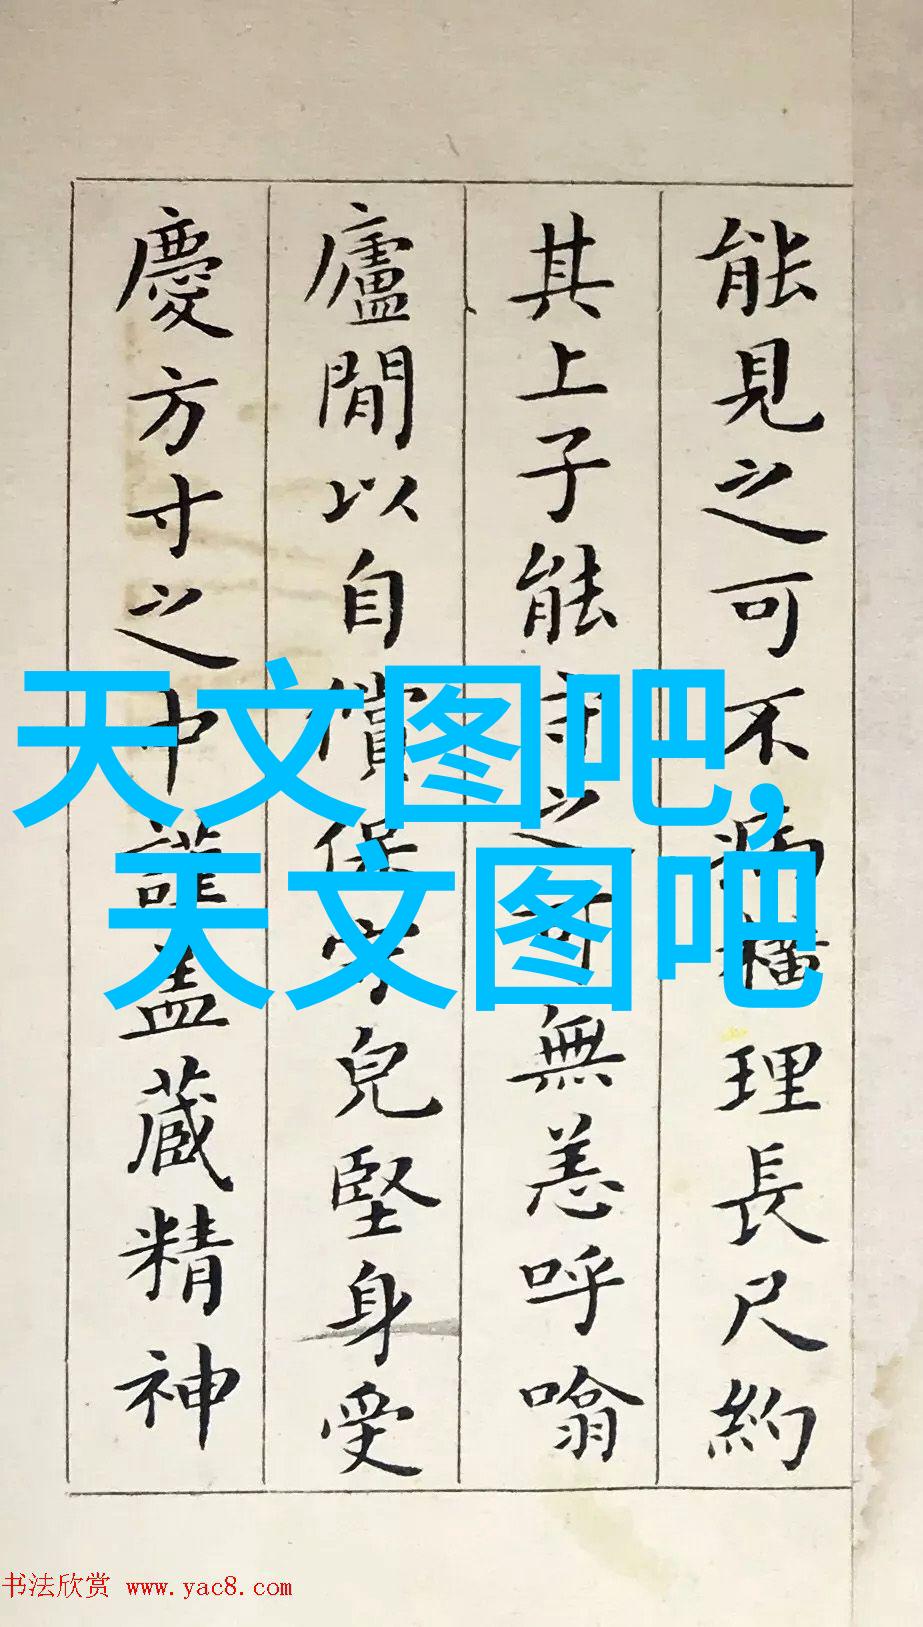 能見之可不病橫理長尺約
其上子能守之可無恙呼噏
廬間以自償保守兒堅身受
慶方寸之中謹盖藏精神
天文图吧,
天文图吧
书法欣赏 www.yac8.com